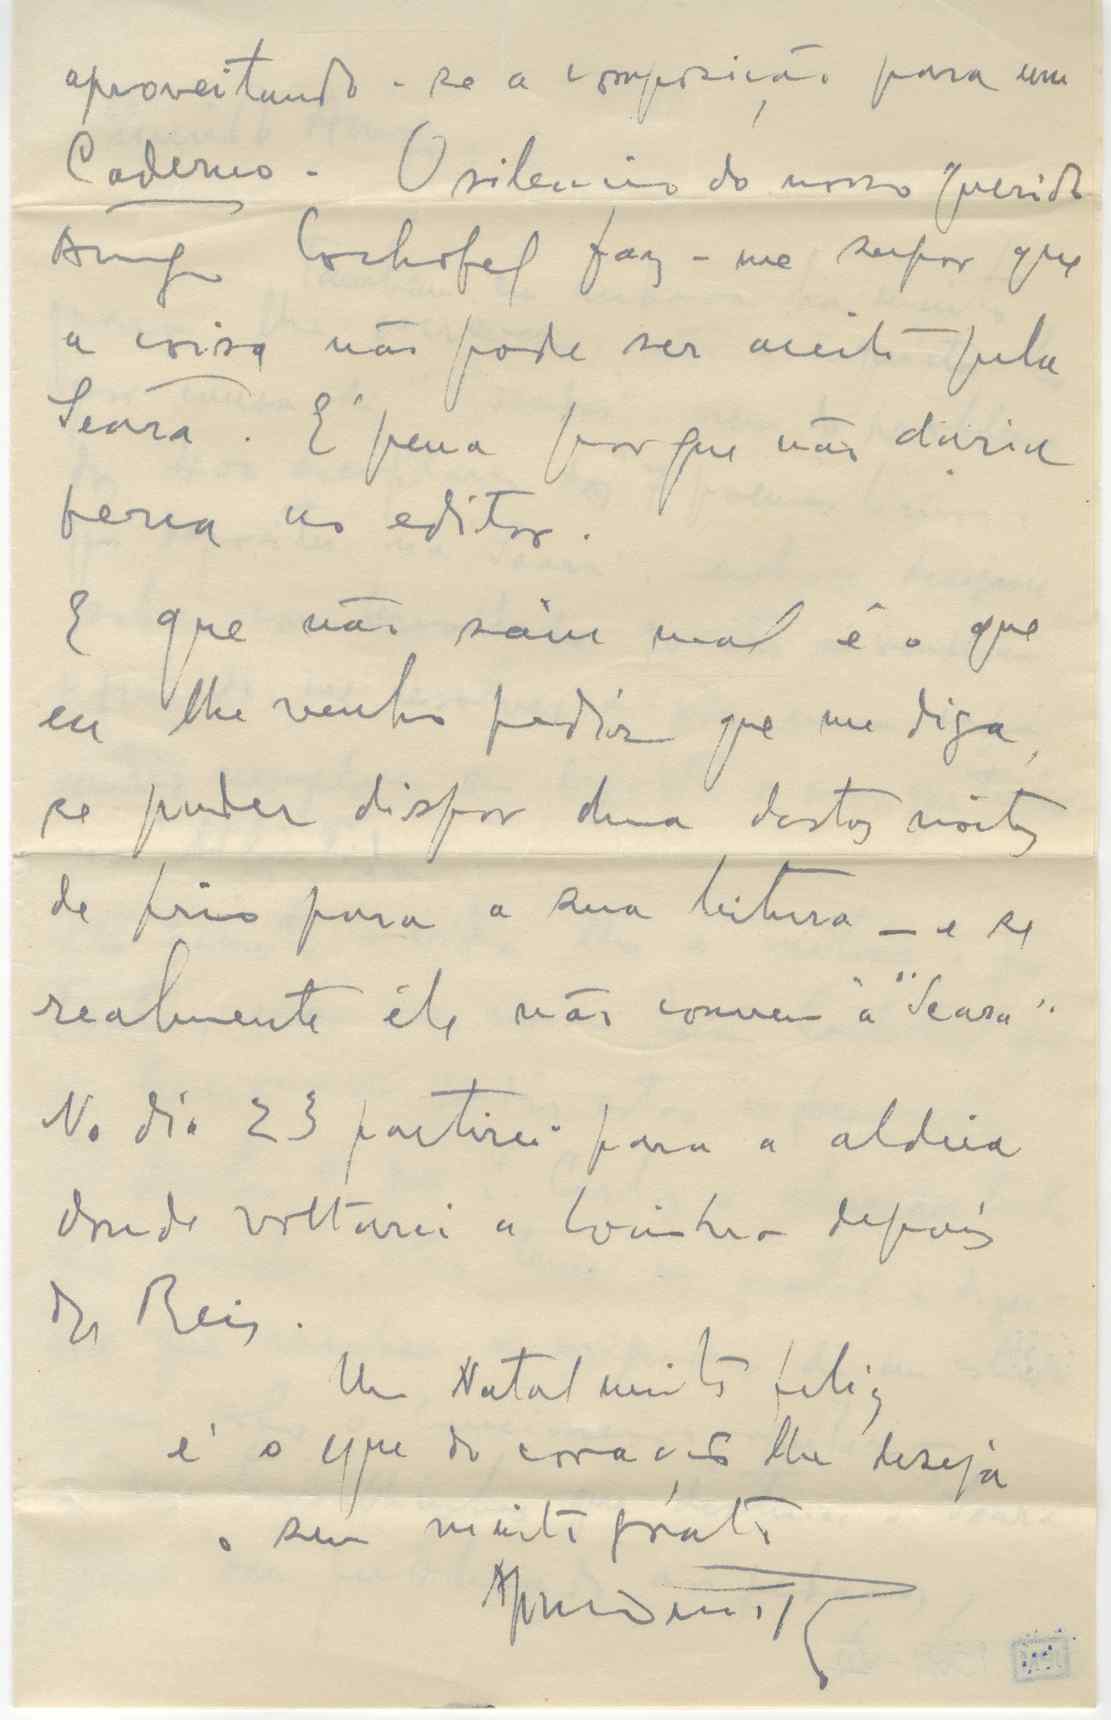 aproveitando-se a composição para um
Caderno. O silencio do nosso querido
Amigo Cochofel faz-me supor que
a coisa não pode ser aceite pela
Seara. É pena porque não daria
perca no editor.
E que não sáiu mal é o que
eu lhe venho pedir que me diga,
se puder dispor duma destas noites
de frio para a sua leitura — e se
realmente êle não convem à "Seara".
No dia 23 partirei para a aldeia
donde voltarei a Coimbra depois
dos Reis.
Um Natal muito feliz
é o que do coração lhe deseja
o seu muito grato